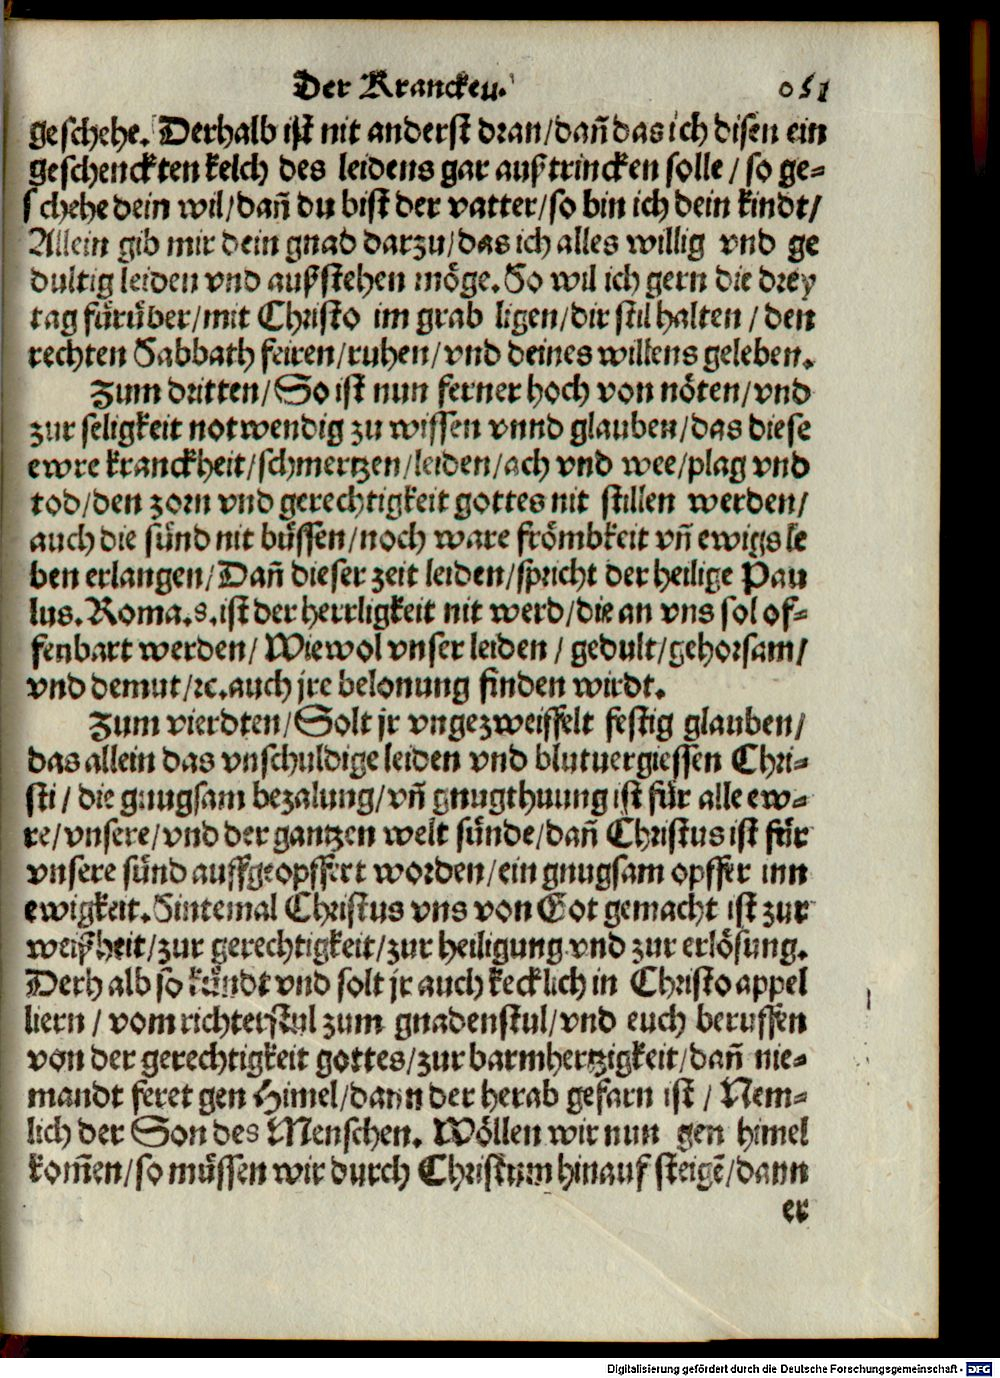 Der Krancken.
051
geschehe. Derhalb ist nit anderst dran/dañ das ich disen ein
geschenckten kelch des leidens gar außtrincken solle / so ge-
schehe dein wil/dañ du bist der vatter/so bin ich dein kindt/
Allein gib mir dein gnad darzu/das ich alles willig vnd ge
dultig leiden vnd außstehen möge. So wil ich gern die drey
tag fürüber/mit Christo im grab ligen/dir stil halten / den
rechten Sabbath feiren/ruhen/vnd deines willens geleben.
Zum dritten/So ist nun ferner hoch von nöten/vnd
zur seligkeit notwendig zu wissen vnnd glauben/das diese
ewre kranckheit/schmertzen/leiden/ach vnd wee/plag vnd
tod/den zorn vnd gerechtigkeit gottes nit stillen werden/
auch die sünd nit büssen/noch ware frömbkeit vñ ewigs le
ben erlangen/Dañ dieser zeit leiden/spricht der heilige Pau
lus. Roma.8.ist der herrligkeit nit werd/die an vns sol of-
fenbart werden/ Wiewol vnser leiden / gedult/gehorsam/
vnd demut/ꝛc.auch jre belonung finden wirdt.
Zum vierdten/Solt jr vngezweiffelt festig glauben/
das allein das vnschuldige leiden vnd blutuergiessen Chri-
sti / die gnugsam bezalung/vñ gnugthuung ist für alle ew-
re/vnsere/vnd der gantzen welt sünde/dañ Christus ist für
vnsere sünd auffgeopffert worden/ein gnugsam opffer inn
ewigkeit. Sintemal Christus vns von Got gemacht ist zur
weißheit/zur gerechtigkeit/zur heiligung vnd zur erlösung.
Derhalb so kündt vnd solt jr auch kecklich in Christo appel
liern / vom richterstul zum gnadenstul/vnd euch beruffen
von der gerechtigkeit gottes/zur barmhertzigkeit/dañ nie-
mandt feret gen Himel/dann der herab gefarn ist / Nem-
lich der Son des Menschen. Wöllen wir nun gen himel
kom̃en/so müssen wir durch Christum hinauf steigē/dann
er
Digitalisierung gefördert durch die Deutsche Forschungsgemeinschaft - DFG